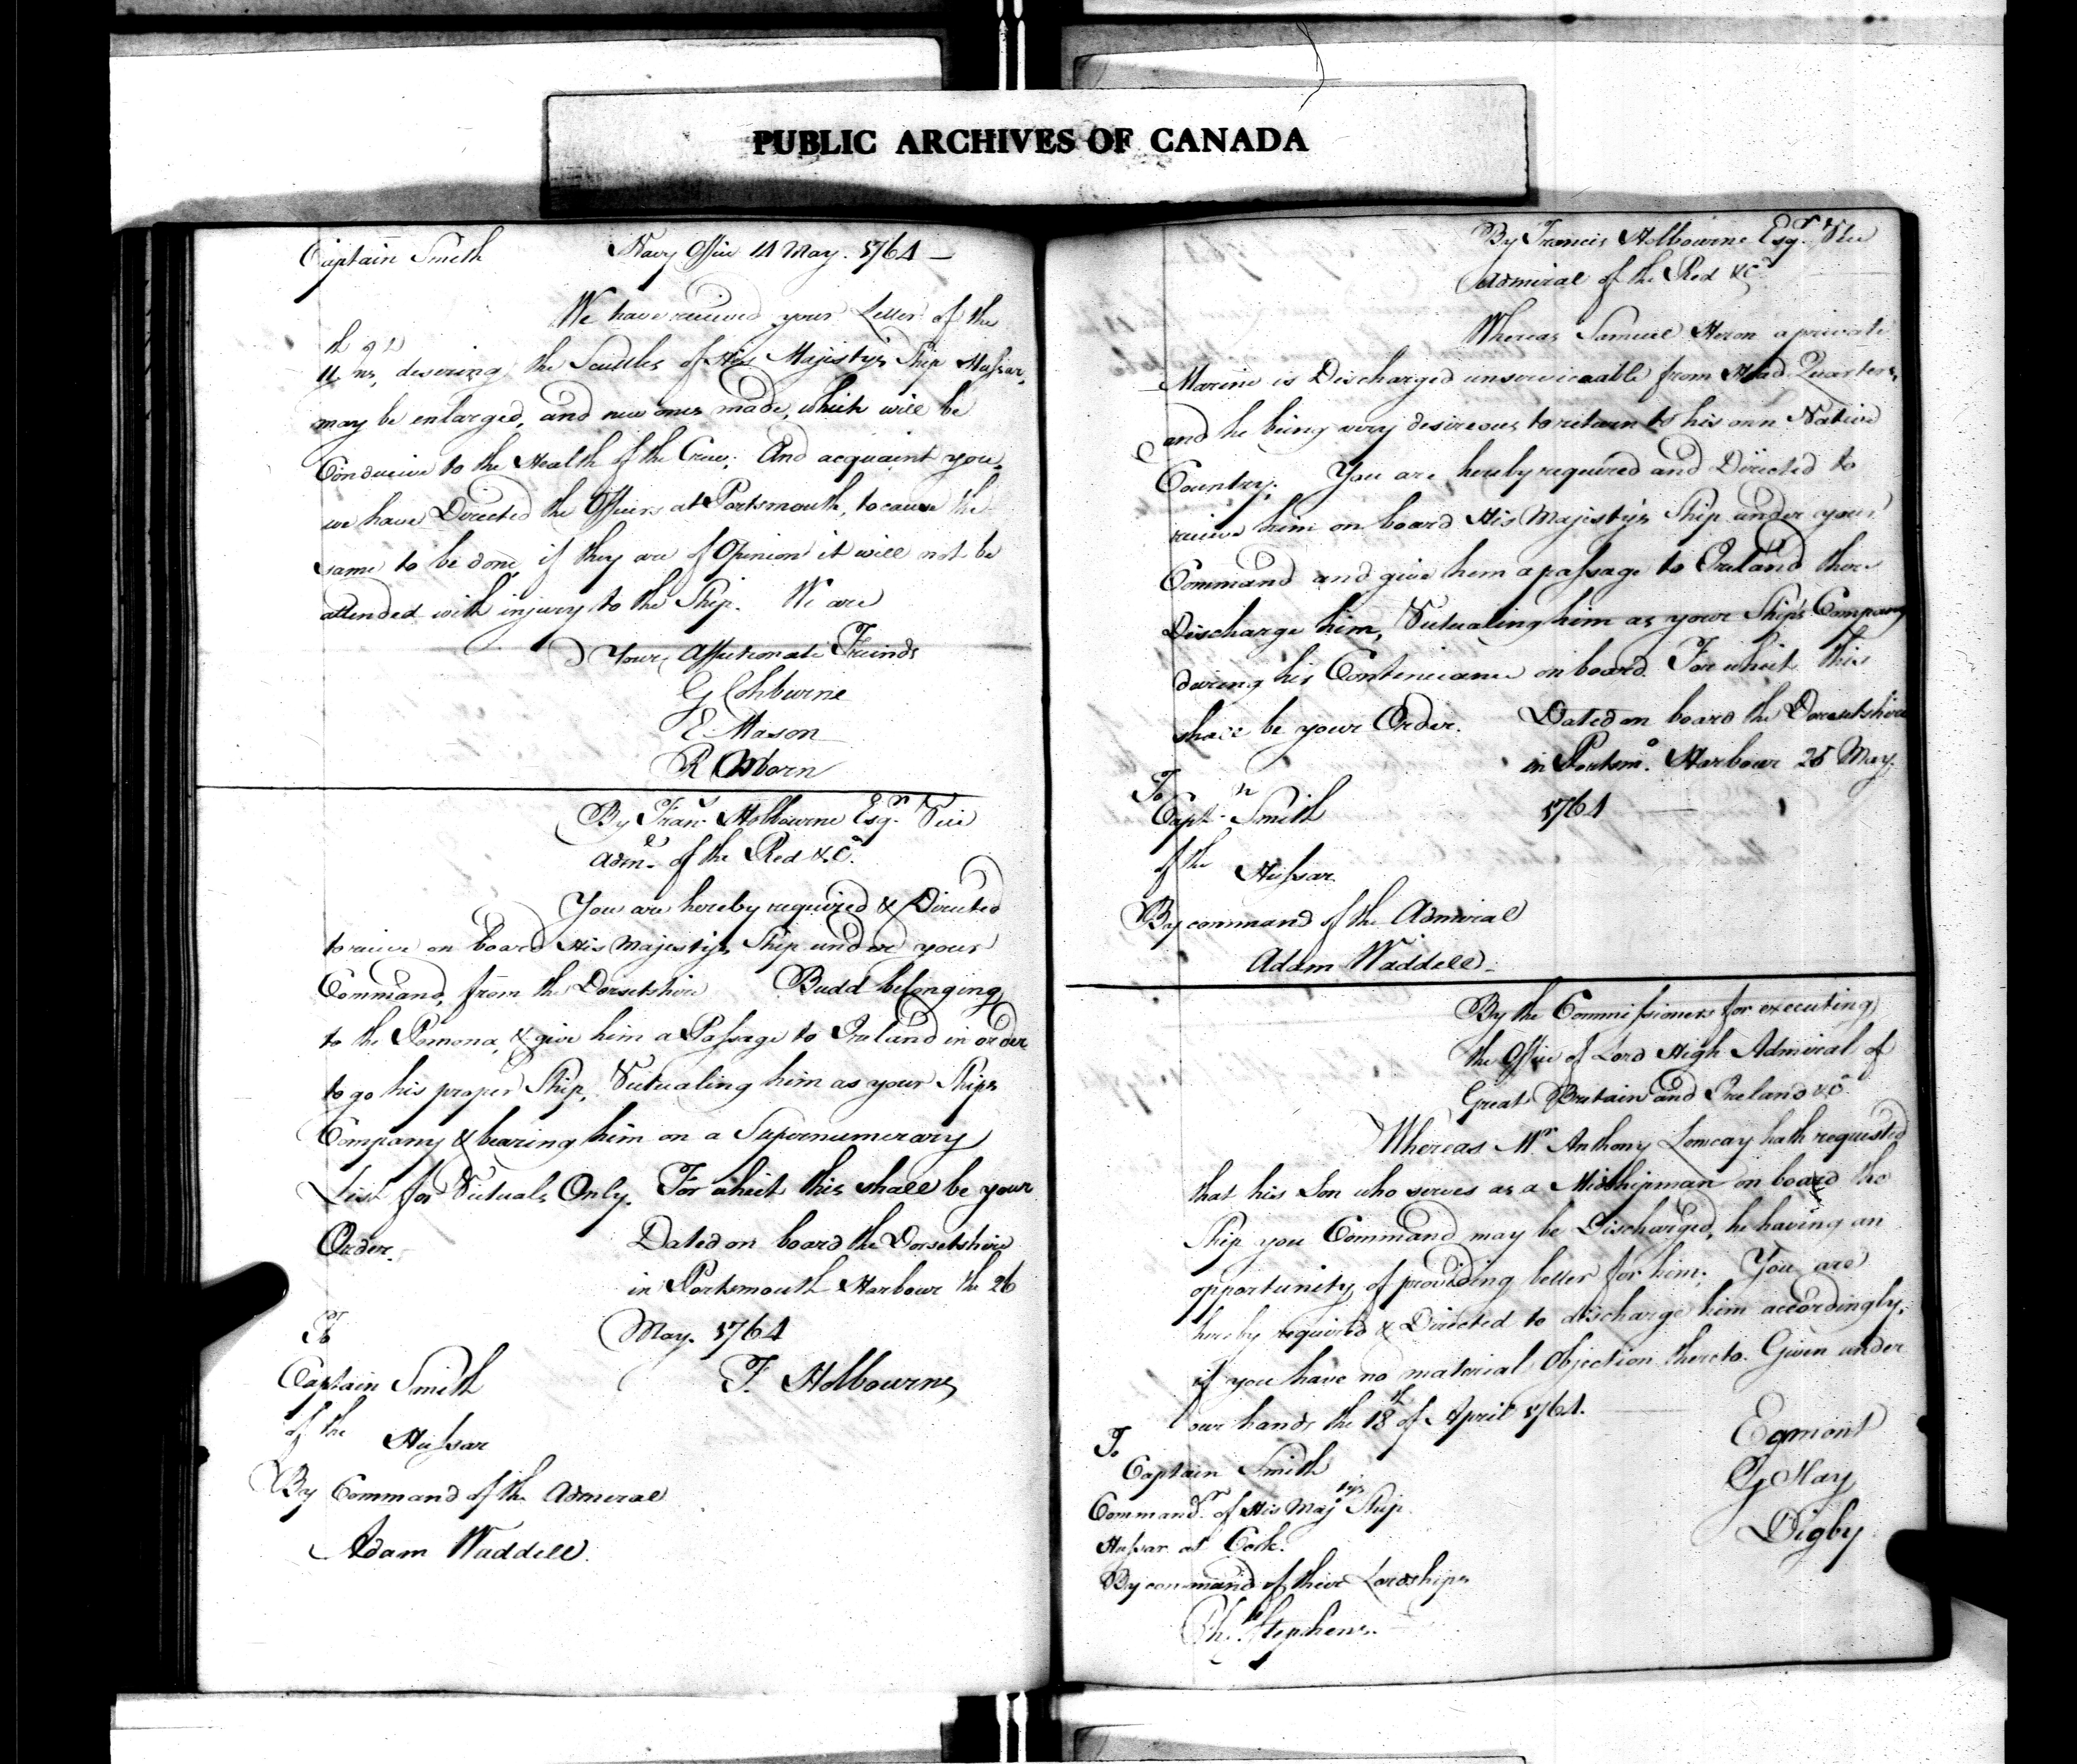 PUBLIC ARCHIVES OF CANADA
Captain Smith Navy Office 14 May. 1764 —
We have received your Letter of the
11th ins, desering the Scuttles of His Majestys Ship Hussar,
may be enlarged, and new ones made, which will be
Conducive to the Health of the Crew; And acquaint you,
we have Directed the Officers at Portsmouth, to cause the
same to be done, if they are of Opinion it will not be
attended with injury to the Ship. We are
Your Affectionate Friends
G Cohburne
E. Mason
R Osborn
By Frans. Holbourne Esqr. Vice
Adml. of the Red &Ca.
You are hereby required & Directed
to receive on board His Majestys Ship under your
Command, from the Dorsetshire Budd belonging
to the Pomona, & give him a Passage to Ireland in order
to go his proper Ship, Victualing him as your Ships
Company & bearing him on a Supernumerary
List for Victuals Only. For which this shall be your
Order. Dated on board the Dorsetshire
in Portsmouth Harbour the 26
May. 1764
To
Captain Smith F. Holbourne
of the Hussar
By Command of the Admiral
Adam Waddell.
By Francis Holbourne Esqr. Vice
Admiral of the Red &Ca
Whereas Samuel Heron a private
Marine is Discharged unserviceable from Head Quarters,
and he being very desireous to return to his own Native
Country; You are hereby required and Directed to
receive him on board His Majestys Ship under your
Command and give him a passage to Ireland there
Discharge him, Victualing him as your Ship's Company
during his Conteniance on board. For which this
shall be your Order. Dated on board the Dorsetshire
in Portsmo. Harbour 25 May.
1764
To
Captn. Smith
of the Hussar
By command of the Admiral
Adam Waddell.
By the Commissioners for executing
the Office of Lord High Admiral of
Great Britain and Ireland &Ca.
Whereas Mr. Anthony hath requested
that his Son who serves as a Midshipman on board the
Ship you Command may be Discharged, he having an
opportunity of providing better for him; You are
hereby required & Directed to discharge him accordingly,
if you have no material Objection thereto. Given under
our hands the 18th of April 1764.
Egmont
G Hay
Digby
To
Captain Smith
Commandr. of His Majtys Ship
Hussar at Cork.
By command of their Lordships
Php. Stephens.